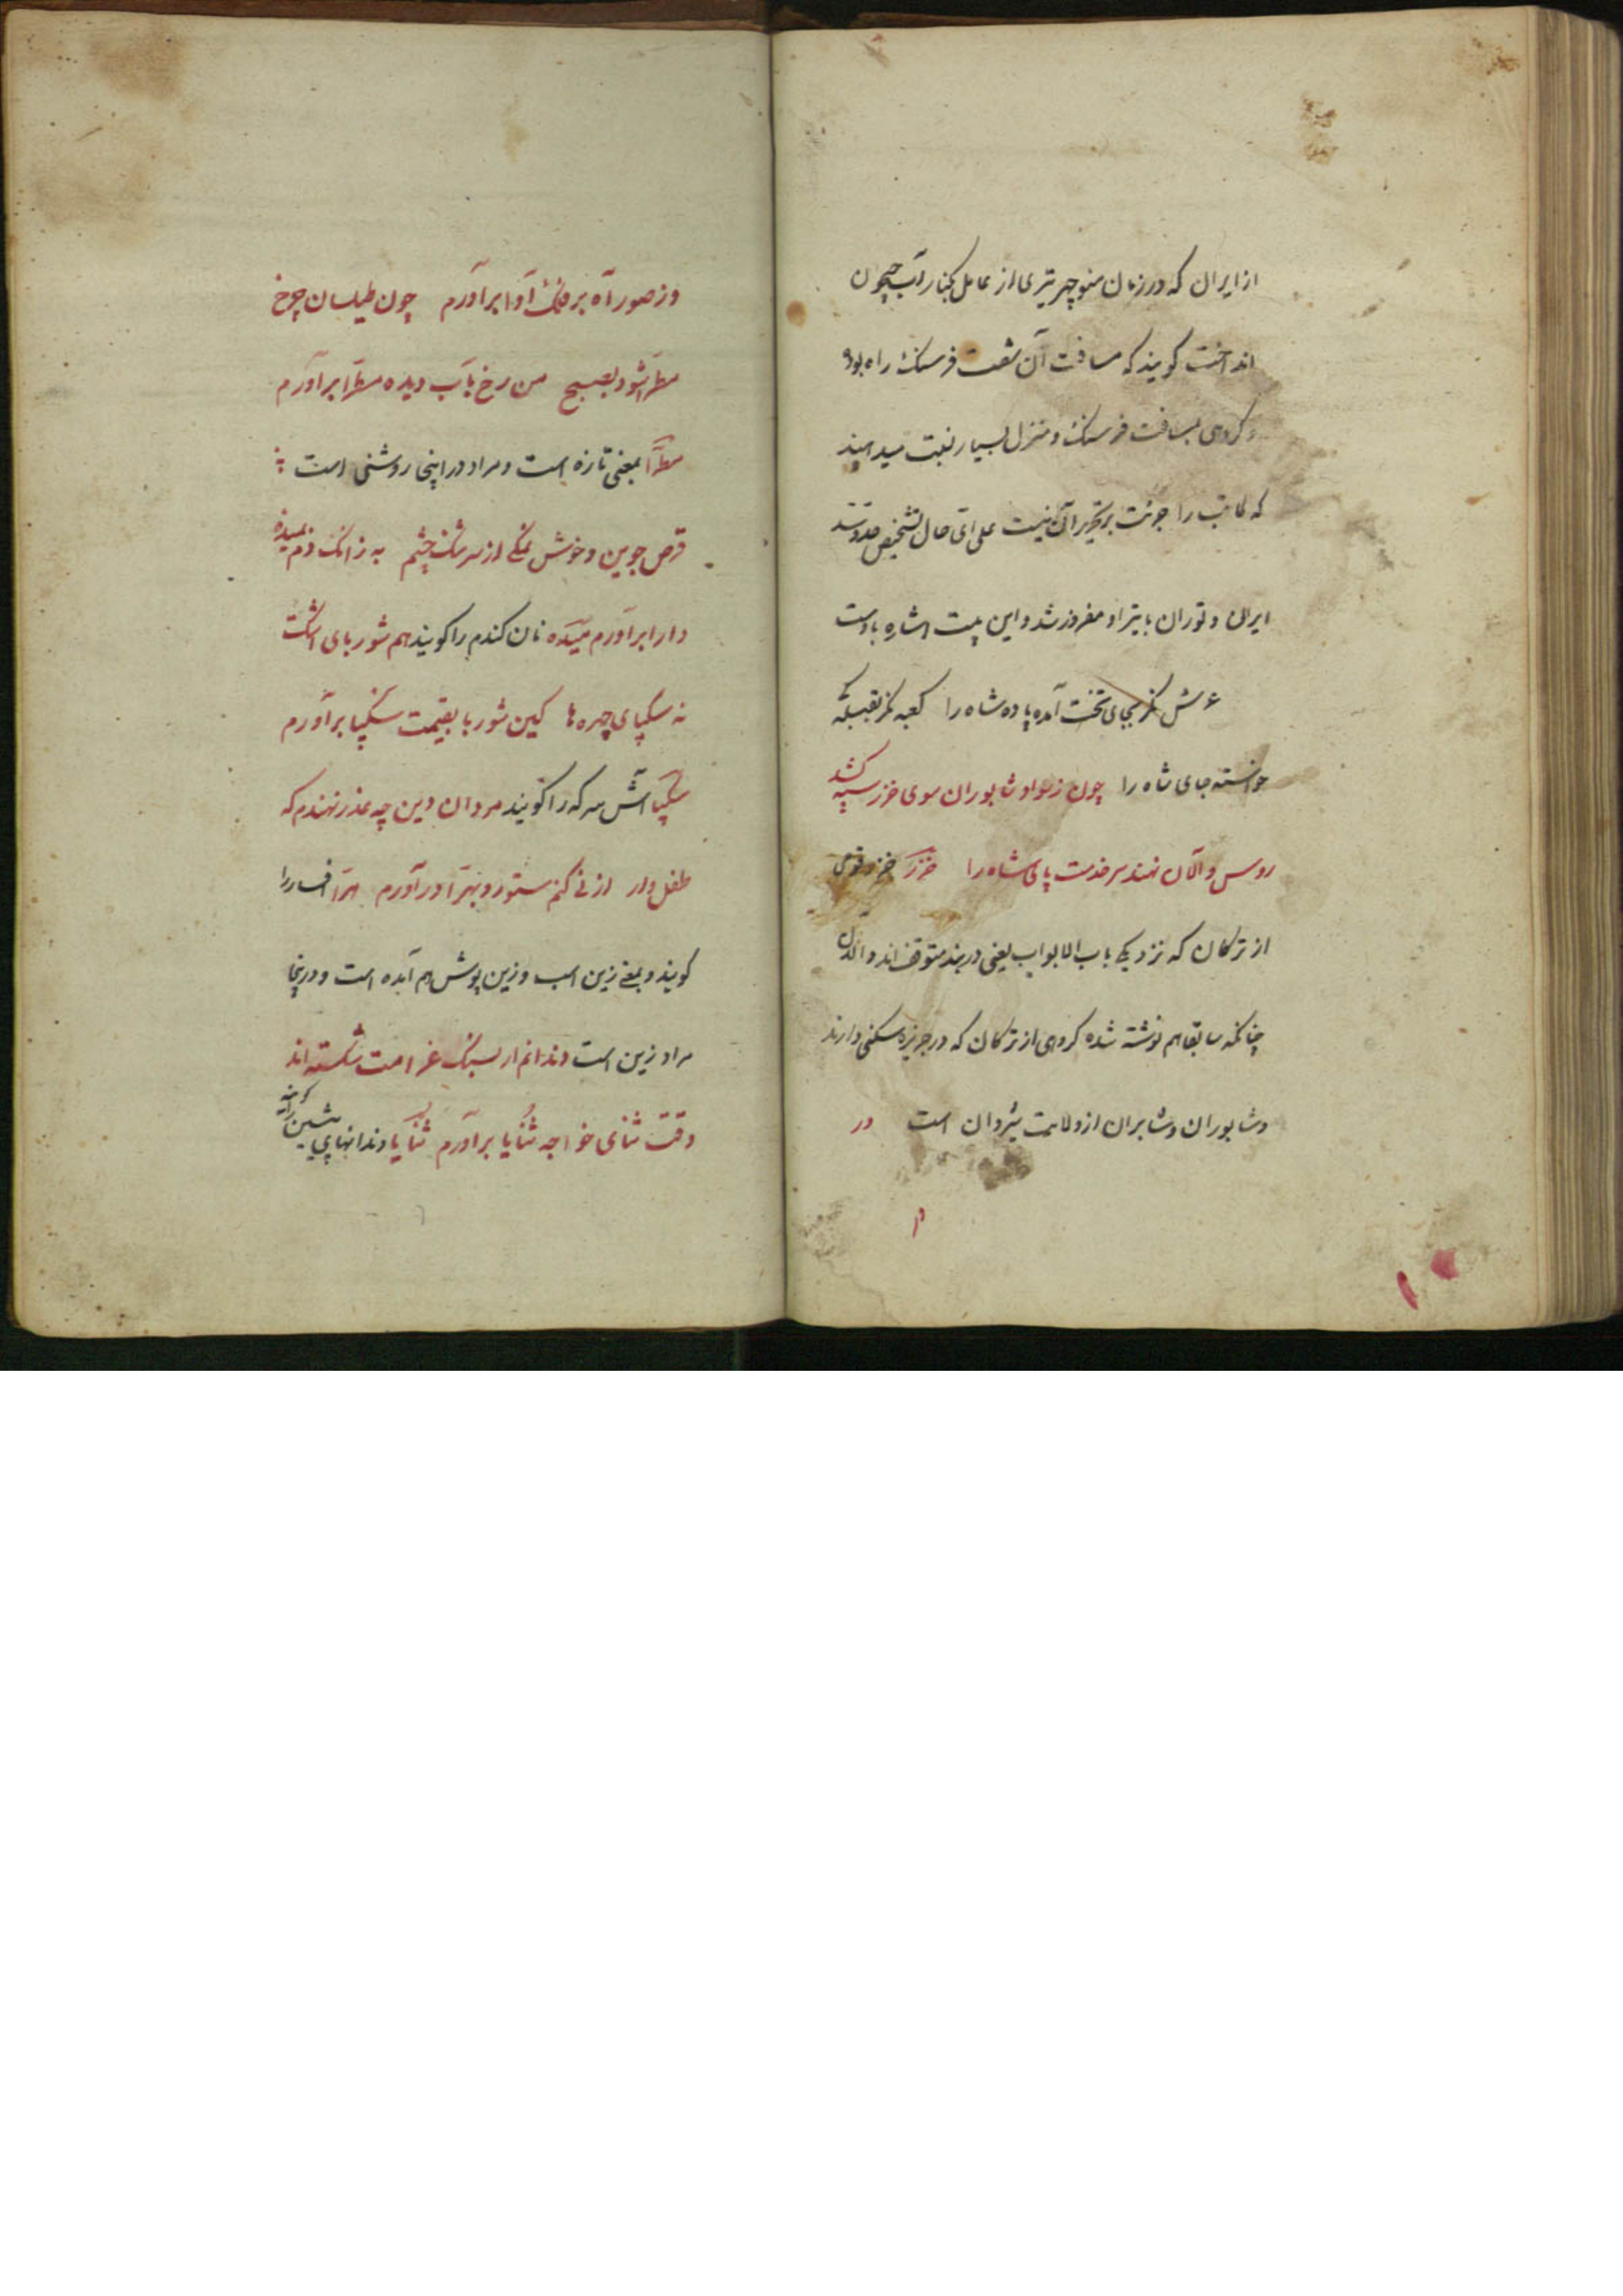 از ایران که در زمان منوچهر تیری از عامل بکنار آب جیحون
انداخت کویند که مسافت آن شصت فرسنک راه بود
و کروهی بمسافت فرسنک و منزل بسیار نسبت میدهند
که کاتب را جرئت بر تحریر آن نیست علی ای حال تشخیص حدود
ایران و توران با تیر او مفروز شد و این بیت اشاره باوست
عرش نکر بجای تخت آمده پاده شاه را کعبه نکر بقبله که
خواسته جای شاه را چون ز سواد شابوران سوی خزر سپه کشد
روس و آلان نهند سر خدمت پای شاه را خزر خزر قومی
از ترکان که نزدیک باب الابواب یعنی دربند متوقف اند و الان
چنانکه سابقا هم نوشته شده کروهی از ترکان که در جزیره سکنی دارند
و شابوران و شابران از ولایت شروان است در
در
وز صور آه بر فلک آوا برآورم چون طیلسان چرخ
مطرا شود بصبح من رخ بآب دیده مطرا برآورم
مطرا بمعنی تازه است و مراد در اینجا روشنی است
قرص جوین و خوش نمکی از سرشک چشم به زانک دم بمیده
دارا برآورم میده نان کندم را کویند هم شوربای اشک
نه سکبای چهره ها کین شوربا بقیمت سکبا برآورم
سکبا آش سرکه را کویند مردان دین چه عذر نهندم که
طفل وار از نی کنم ستور و بهرا درآورم هرا افسار را
کویند و بمعنی زین اسب و زین پوش هم آمده است و در اینجا
مراد زین است دندانم ار بسنک غرامت شکسته اند
وقت ثنای خواجه ثنایا برآورم ثنایا دندانهای پیشین را کویند